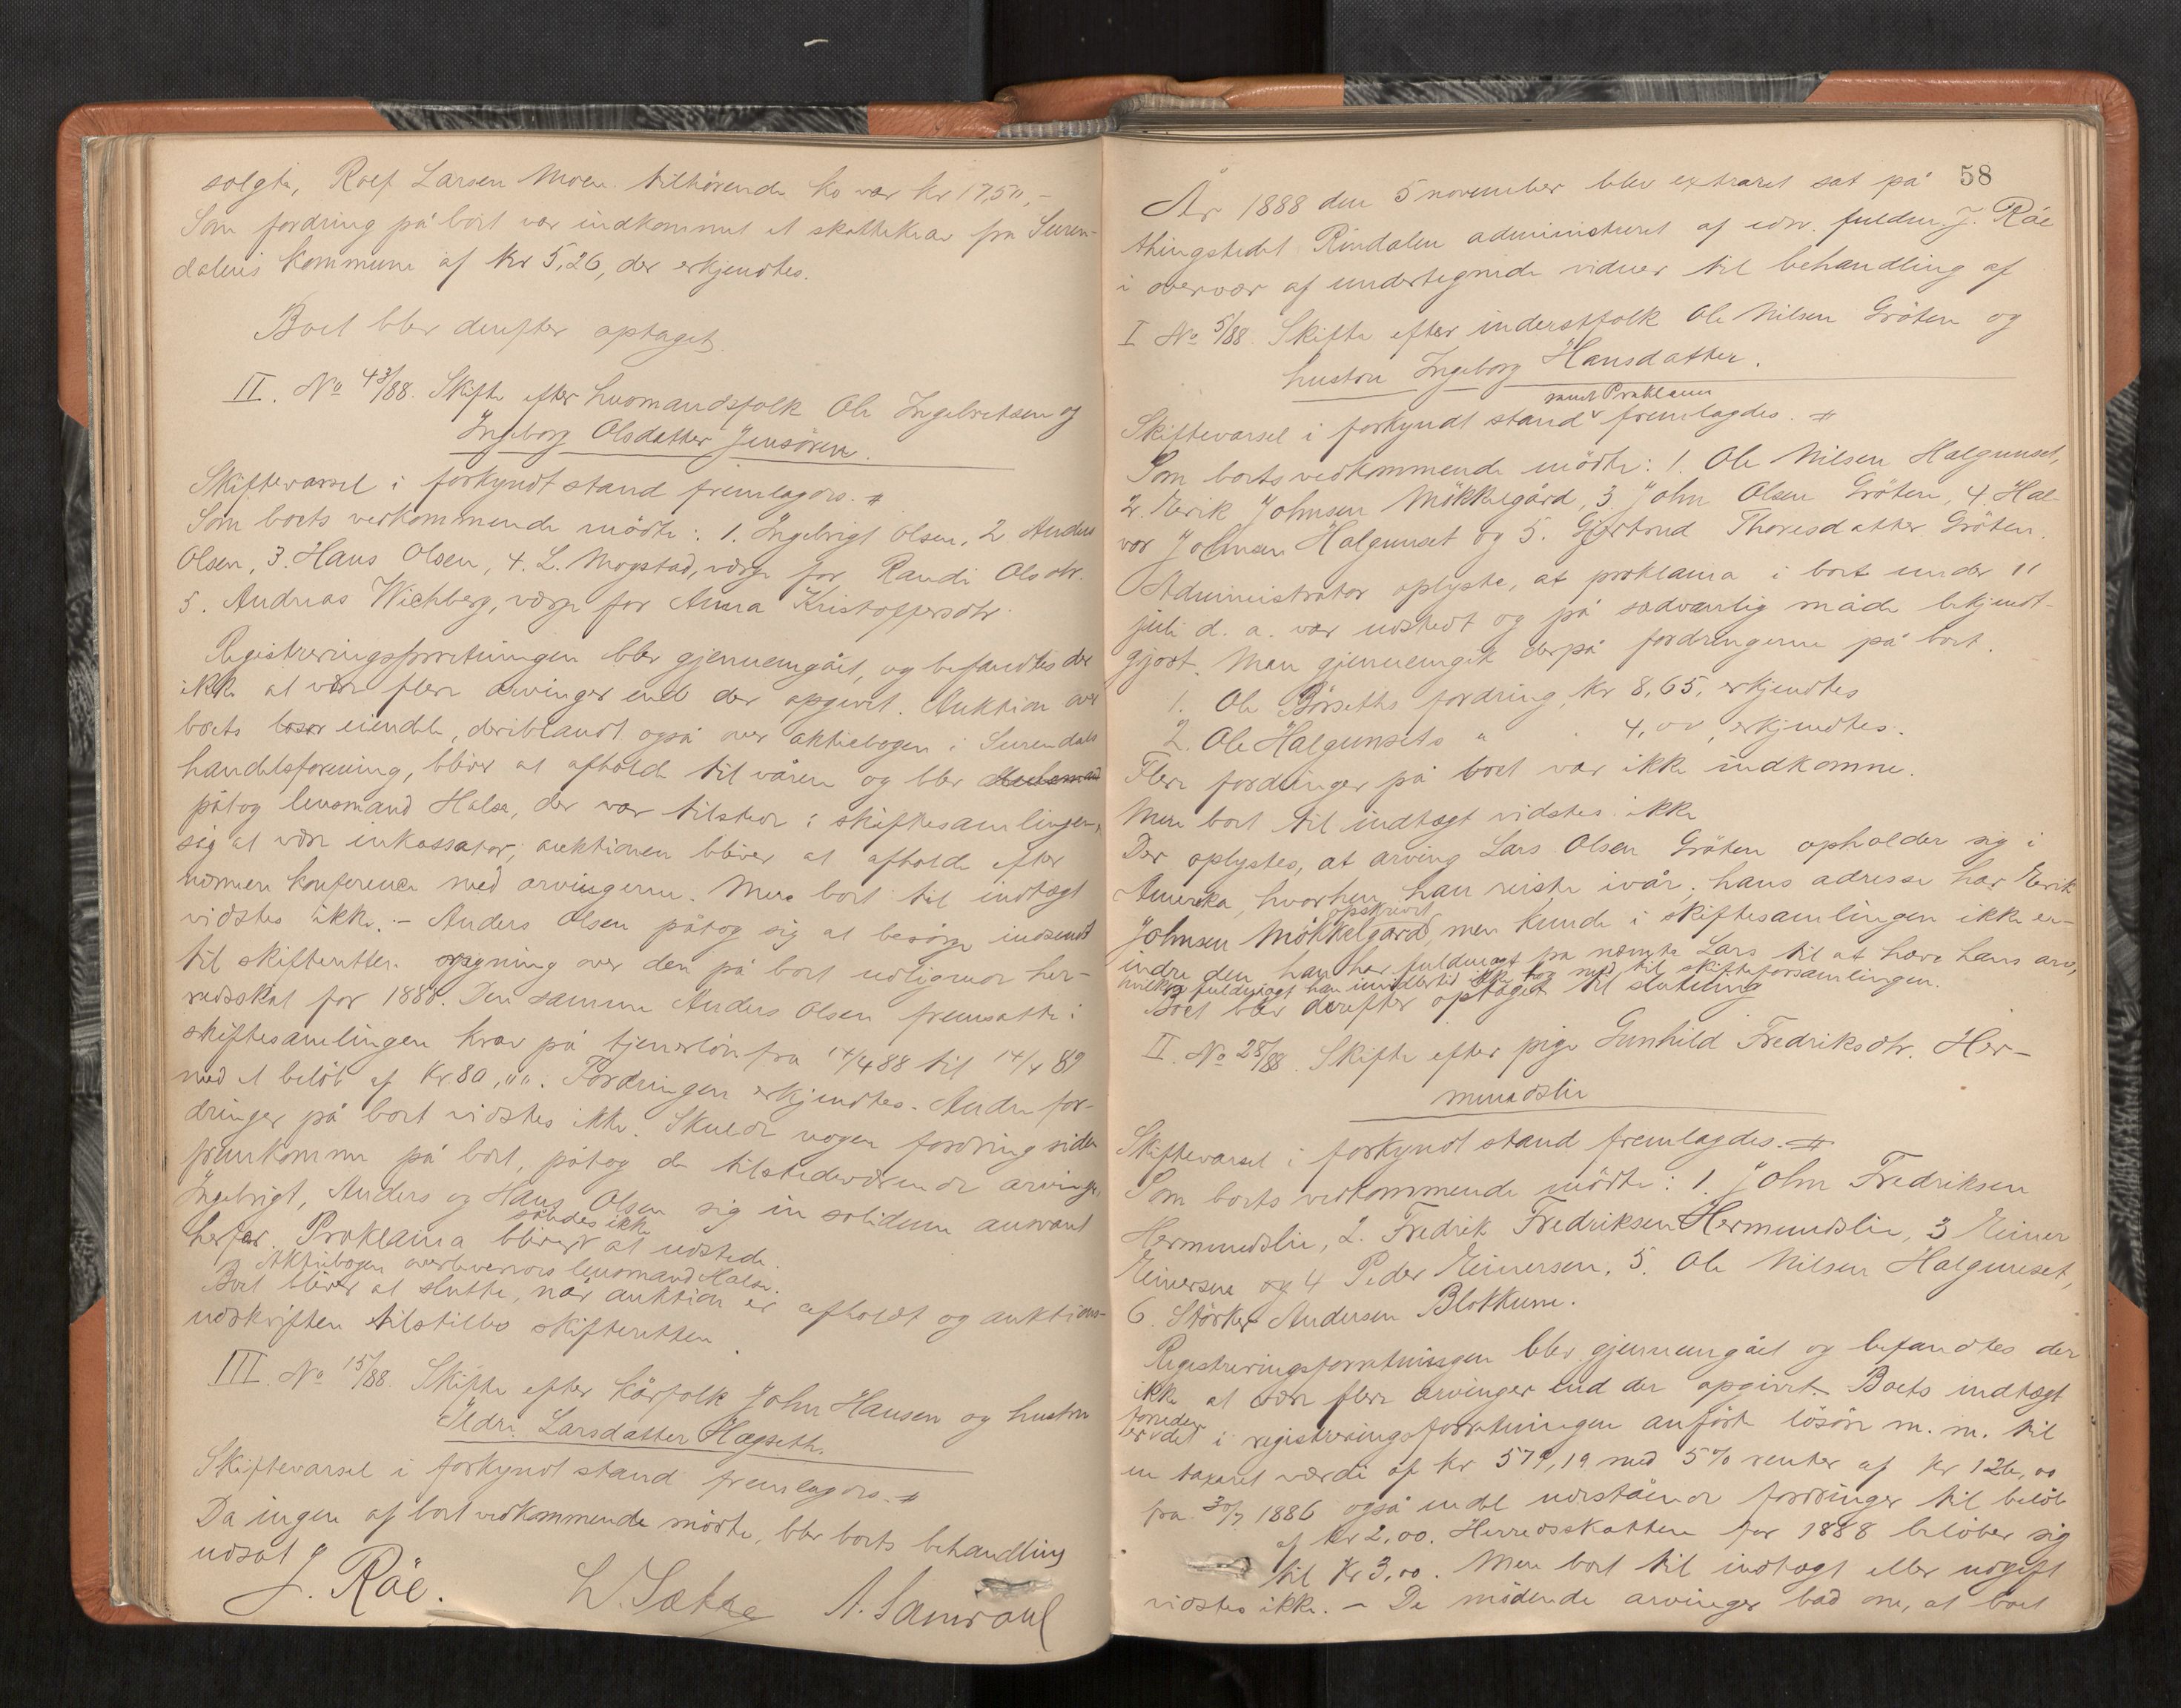 solgte, Roef Larsen Moen tilhörende ko var kr 17,50,-
Som fordring på boet var indkommet et skattekrav fra Suren-
dalens kommune af kr 5,26, der erkjendtes.
Boet blev derefter optaget
II. No 43/88. Skifte efter husmandsfolk Ole Ingebretsen og
Ingeborg Olsdatter Jensören.
Skiftevarsel i forkyndt stand fremlagdes. #
Som boets vedkommende mödte: 1. Ingebrigt Olsen, 2. Anders
Olsen, 3. Hans Olsen, 4. L. Mogstad, verge for Randi Olsdtr.
5. Andreas Wichberg, verge for Anna Kristoffersdtr.
Registreringsforretningen blev gjennemgået, og befandtes der
ikke at være flere arvinger end der opgivet. Auktion over
boets losøre eiendele, deriblandt også over aktiebogen i Surendals
handelsforening, bliver at afholde til våren og blev
påtog lensmand Halse, der var tilstede i skiftesamlingen,
sig at være inkassator; auktionen bliver at afholde efter
nærmere konference med arvingerne. Mere boet til indtægt
vidstes ikke. - Anders Olsen påtog sig at besörge indsendt
til skifteretten opgjning over den på boet udlignede her-
redsskat for 1888. Den samme Anders Olsen fremsatte i
skiftesamlingen krav på tjenerlön fra 14/4 88 til 14/4 89
med et belöb af kr. 80,"". Fordringen erkjendtes. Andre for-
dringer på boet vidstes ikke. Skulde nogen fordring siden
fremkomme på boet, påtog de tilstedeværende arvinger,
Ingebrigt, Anders og Hans Olsen sig in solidum ansvaret
herfor. Proklama bliver således ikke at udstede.
Aktiebogen overleveredes lensmand Halse.
Boet bliver at slutte, når auktion er afholdt og auktions-
udskriften tilstilles skifteretten
III. No 15/88. Skifte efter kårfolk John Hansen og hustru
Ildri Larsdatter Hægseth.
Skiftevarsel i forkyndt stand fremlagdes. #
Da ingen af boet vedkommende mödte, blev boets behandling
udsat
J. Råe. L. Sæther
58
År 1888 den 5 november blev extraret sat på
thingstedet Rindalen administreret af edsv. fuldm. J. Råe
i overvær af undertegnede vidner til behandling af
I No 5/88. Skifte efter inderstfolk Ole Nilsen Gröten og
hustru Ingeborg Hansdatter.
Skiftevarsel i forkyndt stand samt Proklama fremlagdes. #
Som boets vedkommende mödte: 1. Ole Nilsen Halgunset,
2. Eerik Johnsen Mökkelgård, 3. John Olsen Gröten, 4. Hal-
vor Johnsen Halgunset og 5. Gjertrud Thoresdatter Gröten.
Administrator oplyste, at proklama i boet under 11
juli d. a. var udstedt og på sædvanlig måde bekjendt-
gjort. Man gjennemgik derpå fordringerne på boet.
1. Ole Börseths fordring, kr 8,65, erkjendtes
2. Ole Halgunsets " " 4,00, erkjendtes.
Flere fordringer på boet var ikke indkomne.
Mere boet til indtægt vidstes ikke
Der oplystes, at arving Lars Olsen Gröten opholder sig i
Amerika, hvorhen han reiste ivår; hans adresse har Eerik
Johnsen Mökkelgård opskrevet, men kunde i skiftesamlingen ikke er-
indre den, han har fuldmagt fra nævnte Lars til at hæve hans arv,
hvilken fuldmagt han imidlertid ikke tog med til skifteforsamlingen.
Boet blev derefter optaget til slutning
II. No 28/88. Skifte efter pige Gunhild Fredriksdtr. Her-
mundslie
Skiftevarsel i forkyndt stand fremlagdes. #
Som boets vedkommende mödte: 1. John Fredriksen
Hermundslie, 2. Fredrik Fredriksen Hermundslie, 3 Einer
Einersen og 4 Peder Einersen, 5. Ole Nilsen Halgunset,
6. Störker Andersen Blokkum.
Registreringsforretningen blev gjennemgået og befandtes der
ikke at være flere arvinger end der opgivet. Boets indtægt
foruden det i registreringsforretningen anförte lösöre m. m. til
en taxeret værdi af kr 579,19 med 5% renter af kr 126,00
fra 30/7 1886 også endel udestående fordringer til belöb
af kr 2,00. Herredsskatten for 1888 belöber sig
til kr 3,00. Mere boet til indtægt eller udgift
vidstes ikke. - De mödende arvinger bad om, at boet